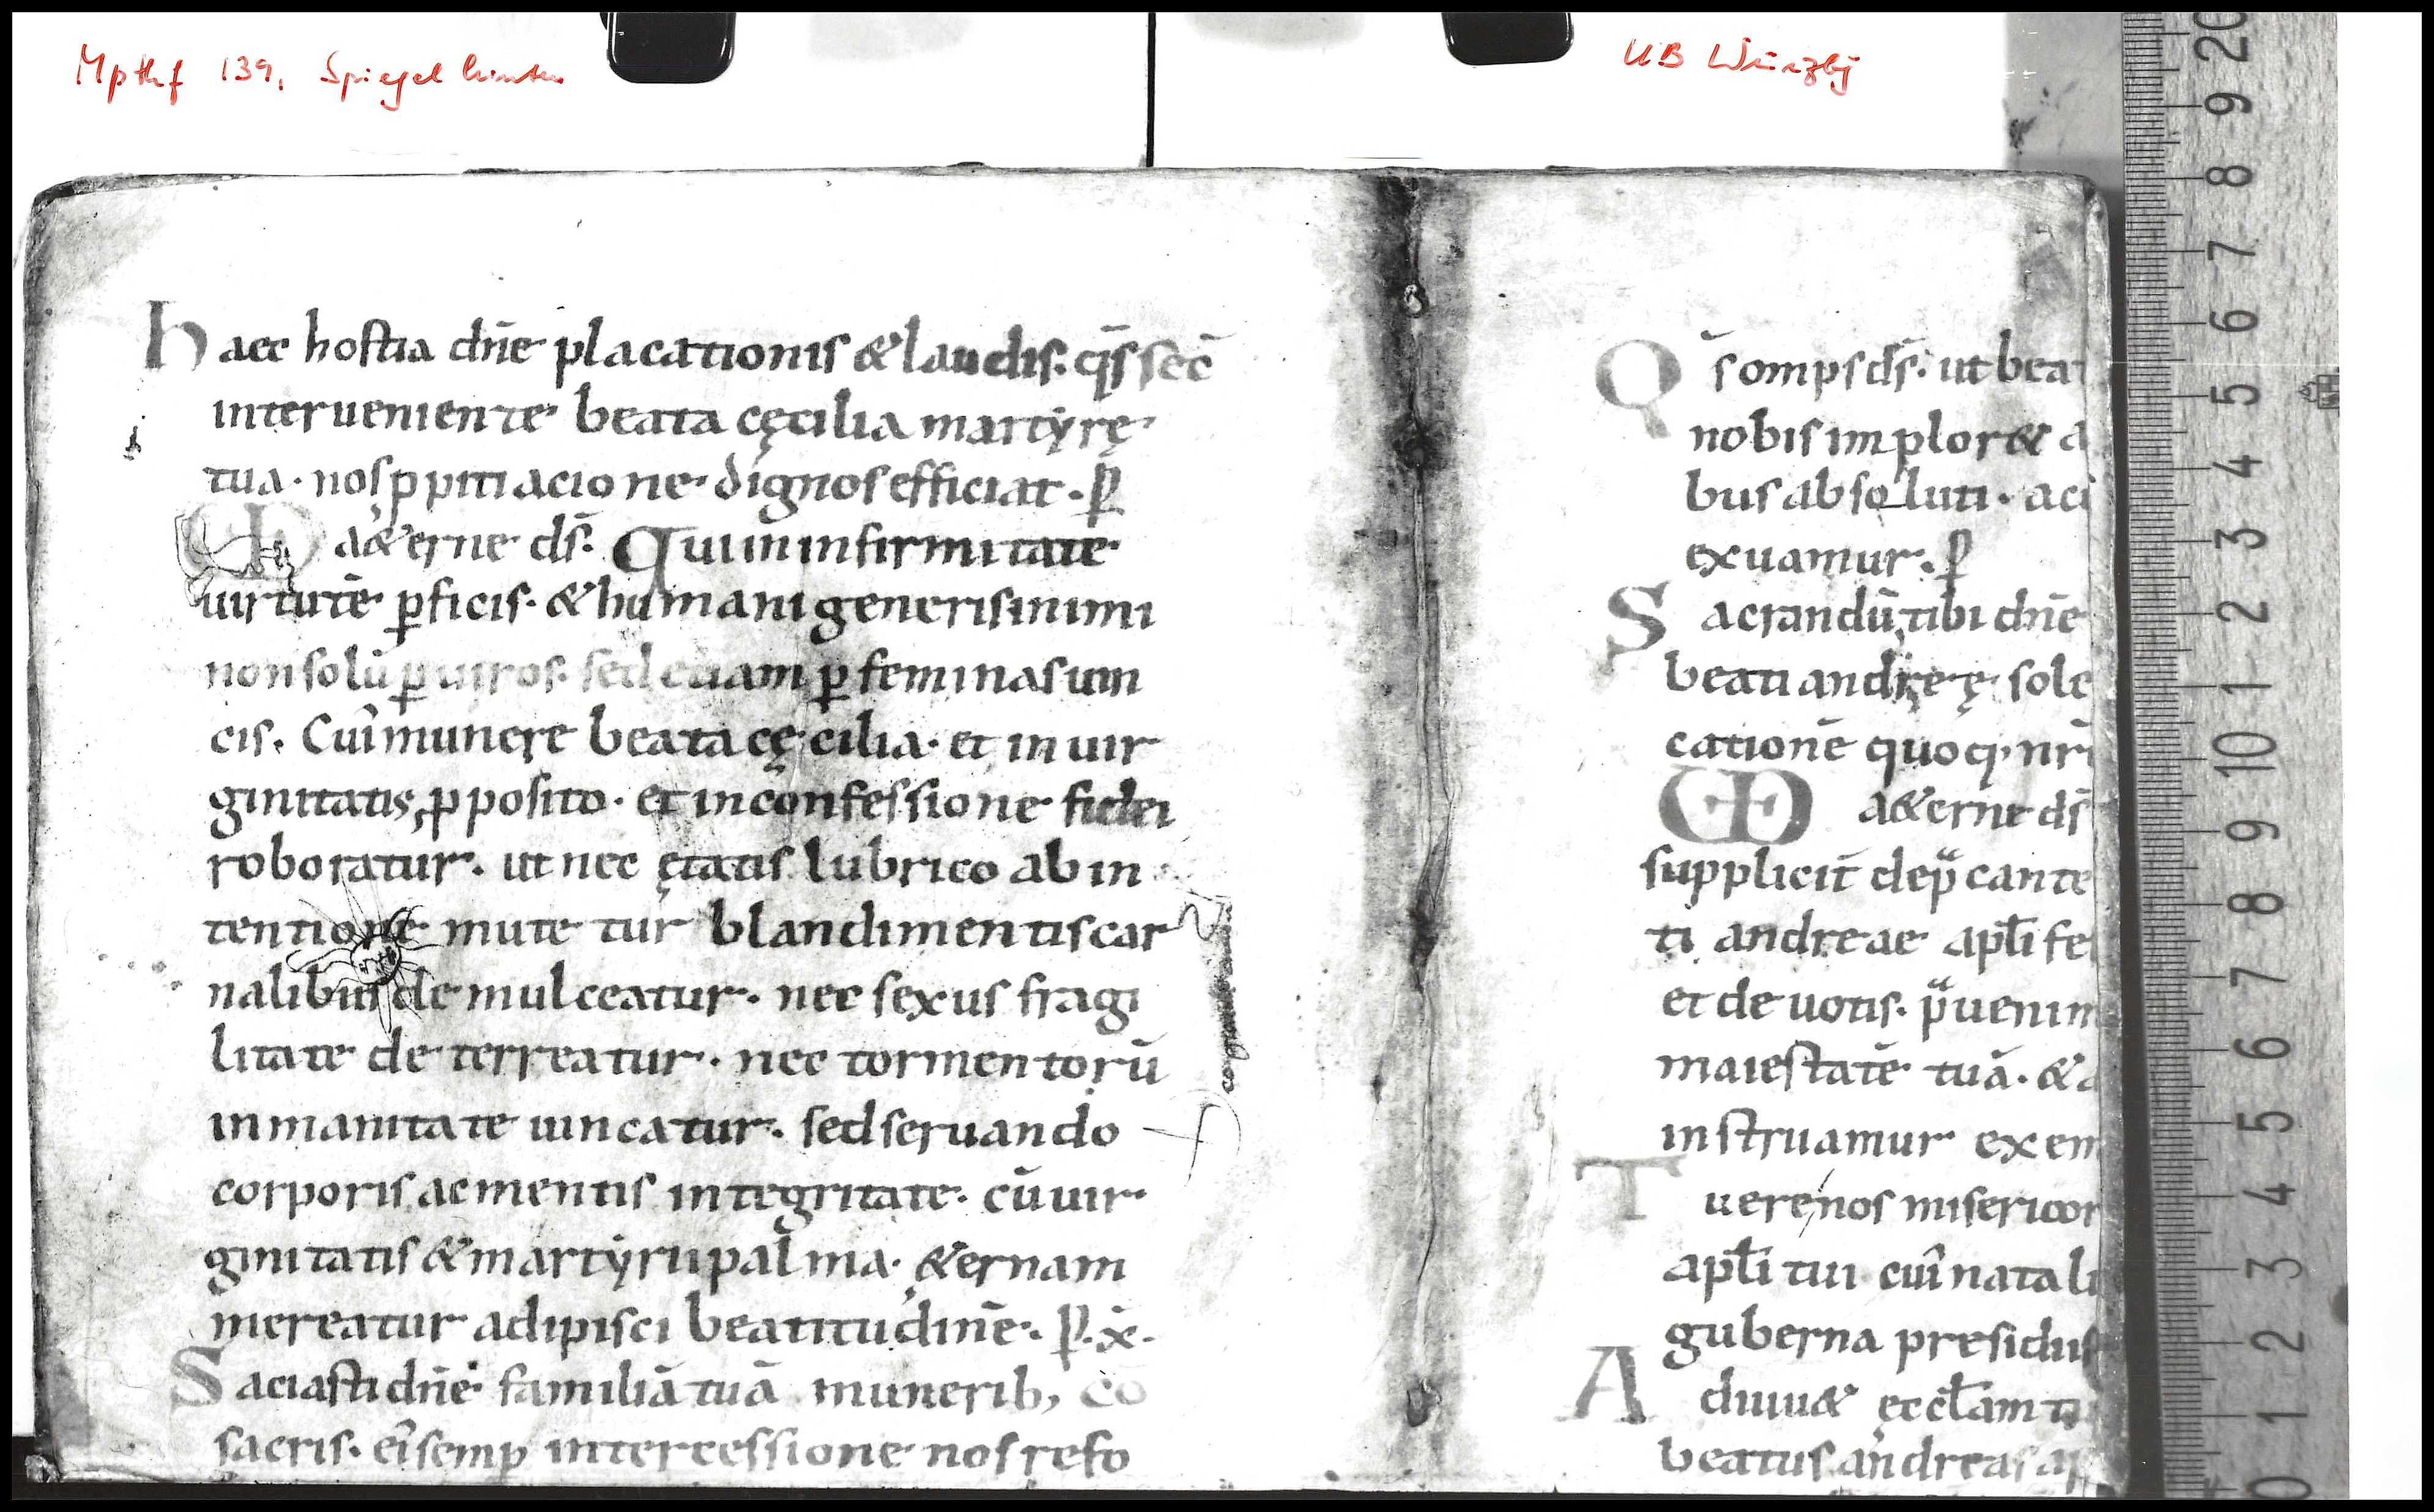 Mpthf 139, Spiegel hinten
UB Würzbg
haec hostia dñe placationis & laudis. qs̄ sēc
interueniente beata cęcilia martyrę
tua. nos ppitiacione dignos efficiat. P
UD a&erne ds̄. Qui in infirmitate
uirtutē pficis. & humani generis inimi
non solū p uiros. sed etiam p feminas uin
cis. Cui̾ munere beata cęcilia. et in uir
ginitatis pposito. et in confessione fidei
roboratur. ut nec ętatis lubrico ab in
tentione mutetur blandimentis car
nalibus demulceatur. nec sexus fragi
litate deterreatur. nec tormentorū
inmanitate uincatur. sed seruando
corporis ac mentis integritate. cū uir
ginitatis & martyrii palma. &ernam
mereatur adipisci beatitudinē. P. x̄.
Saciasti dñe familiā tuā munerib,
sacris. ei̾ semp intercessione nos refo
Qs̄ omps ds̄. ut beat
nobis implor& a
bus absoluti. ac
exuamur. P
Sacrandū tibi dñe
beati andreę sole
cationē quoq, nr̄
UD a&erne ds̄
suppliciť dep̄cante
ti andreae apl̄i fe
et de uotis. p̄uenim
maiestatē tuā. &
instruamur exem
Tuere nos misericor
apl̄i tui cui̾ natali
guberna presidiis
Adiuu& ęccl̄am tu
beatus andreas ap
0 1 2 3 4 5 6 7 8 9 10 1 2 3 4 5 6 7 8 9 20